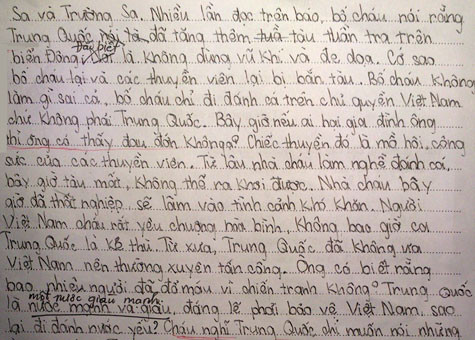 Sa và Trường Sa. Nhiều lần đọc trên báo, bố cháu nói rằng
Trung Quốc nói là đã tăng thêm tàu tuần tra trên
đặc biệt
biển Đông, là không dùng vũ khí và đe dọa. Cớ sao
bố cháu lại và các thuyền viên lại bị bắn tàu. Bố cháu không
làm gì sai cả, bố cháu chỉ đi đánh cá trên chủ quyền Việt Nam
chứ không phải Trung Quốc. Bây giờ nếu ai hại gia đình ông
thì ông có thấy đau đớn không? Chiếc thuyền đó là mồ hôi, công
sức của các thuyền viên. Từ lâu nhà cháu làm nghề đánh cá,
bây giờ tàu mất, không thể ra khơi được. Nhà cháu bây
giờ đã thất nghiệp sẽ lâm vào tình cảnh khó khăn. Người
Việt Nam cháu rất yêu chuộng hòa bình, không bao giờ coi
Trung Quốc là kẻ thù. Từ xưa, Trung Quốc đã không ưa
Việt Nam nên thường xuyên tấn công. Ông có biết rằng
bao nhiêu người đã đổ máu vì chiến tranh không? Trung Quốc
một nước giàu mạnh
là nước mạnh và giàu, đáng lẽ phải bảo vệ Việt Nam, sao
lại đi đánh nước yếu? Cháu nghĩ Trung Quốc chỉ muốn nói những